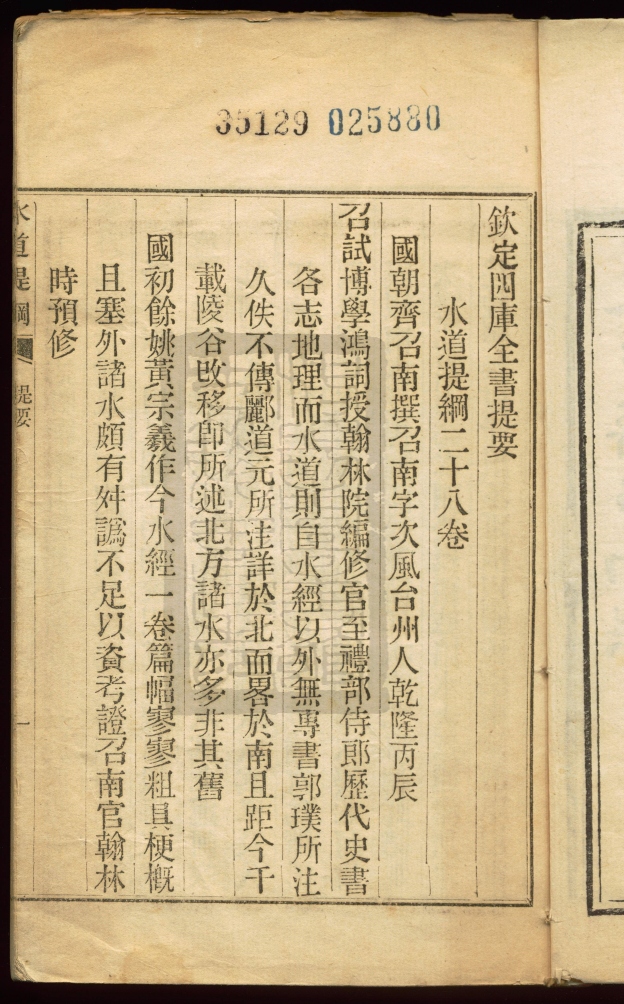 35129 025880
欽定四庫全書提要
水道提綱二十八卷
國朝齊召南撰召南字次風台州人乾隆丙辰
召試博學鴻詞授翰林院編修官至禮部侍郎歷代史書
各志地理而水道則自水經以外無專書郭璞所注
久佚不傳酈道元所注詳於北而畧於南且距今千
載陵谷改移卽所述北方諸水亦多非其舊
國初餘姚黃宗羲作今水經一卷篇幅寥寥粗具梗概
且塞外諸水頗有舛譌不足以資考證召南官翰林
時預修
水道是綱 提要 一